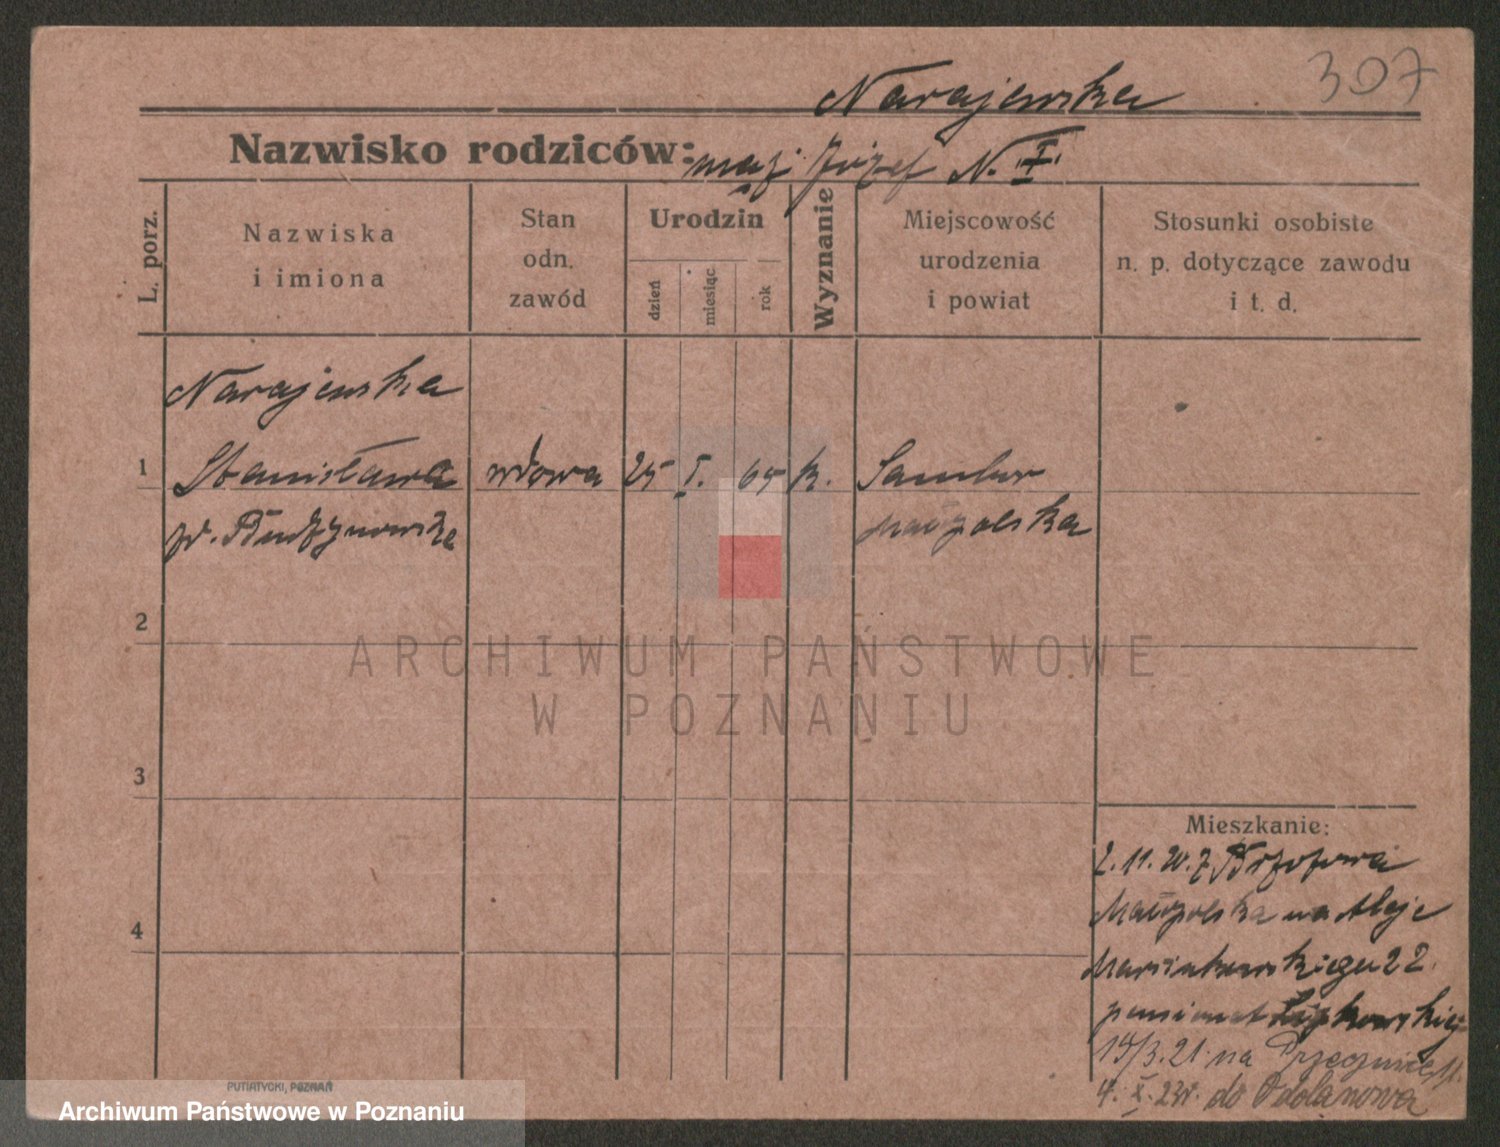 307
Narajewska
Nazwisko rodziców: mąż Józef N. I
L. porz.
Nazwiska
i imiona
Stan
odn.
zawód
Urodzin
dzień
miesiąc
rok
Wyznanie
Miejscowość
urodzenia
i powiat
Stosunki osobiste
n. p. dotyczące zawodu
i t. d.
Narajewska
1 Stanisława wdowa 25 I. 65 k. Sambor
Małopolska
2
3
4
ARCHIWUM PAŃSTWOWE
W POZNANIU
Mieszkanie:
2.11.20. z
Małopolska na Aleje
Marcinkowskiego 22.
pensionat
19/3.21 na
4. X. 23r. do Odolanowa
PUTIATYCKI, POZNAŃ
Archiwum Państwowe w Poznaniu